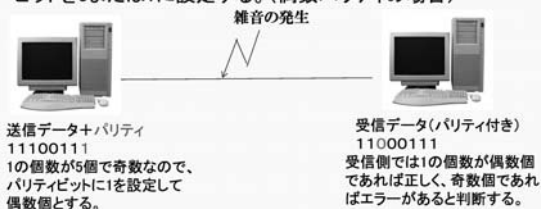 ビットを0または1に設定する。(偶数パリティの場合)
雑音の発生
送信データ+パリティ
11100111
1の個数が5個で奇数なので、
パリティビットに1を設定して
偶数個とする。
受信データ(パリティ付き)
11000111
受信側では1の個数が偶数個
であれば正しく、奇数個であれ
ばエラーがあると判断する。